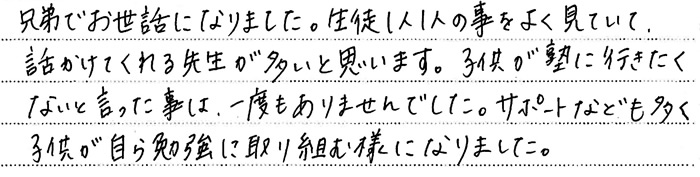 兄弟でお世話になりました。生徒1人1人の事をよく見ていて、
話かけてくれる先生が多いと思います。子供が塾に行きたく
ないと言った事は、一度もありませんでした。サポートなども多く
子供が自ら勉強に取り組む様になりました。